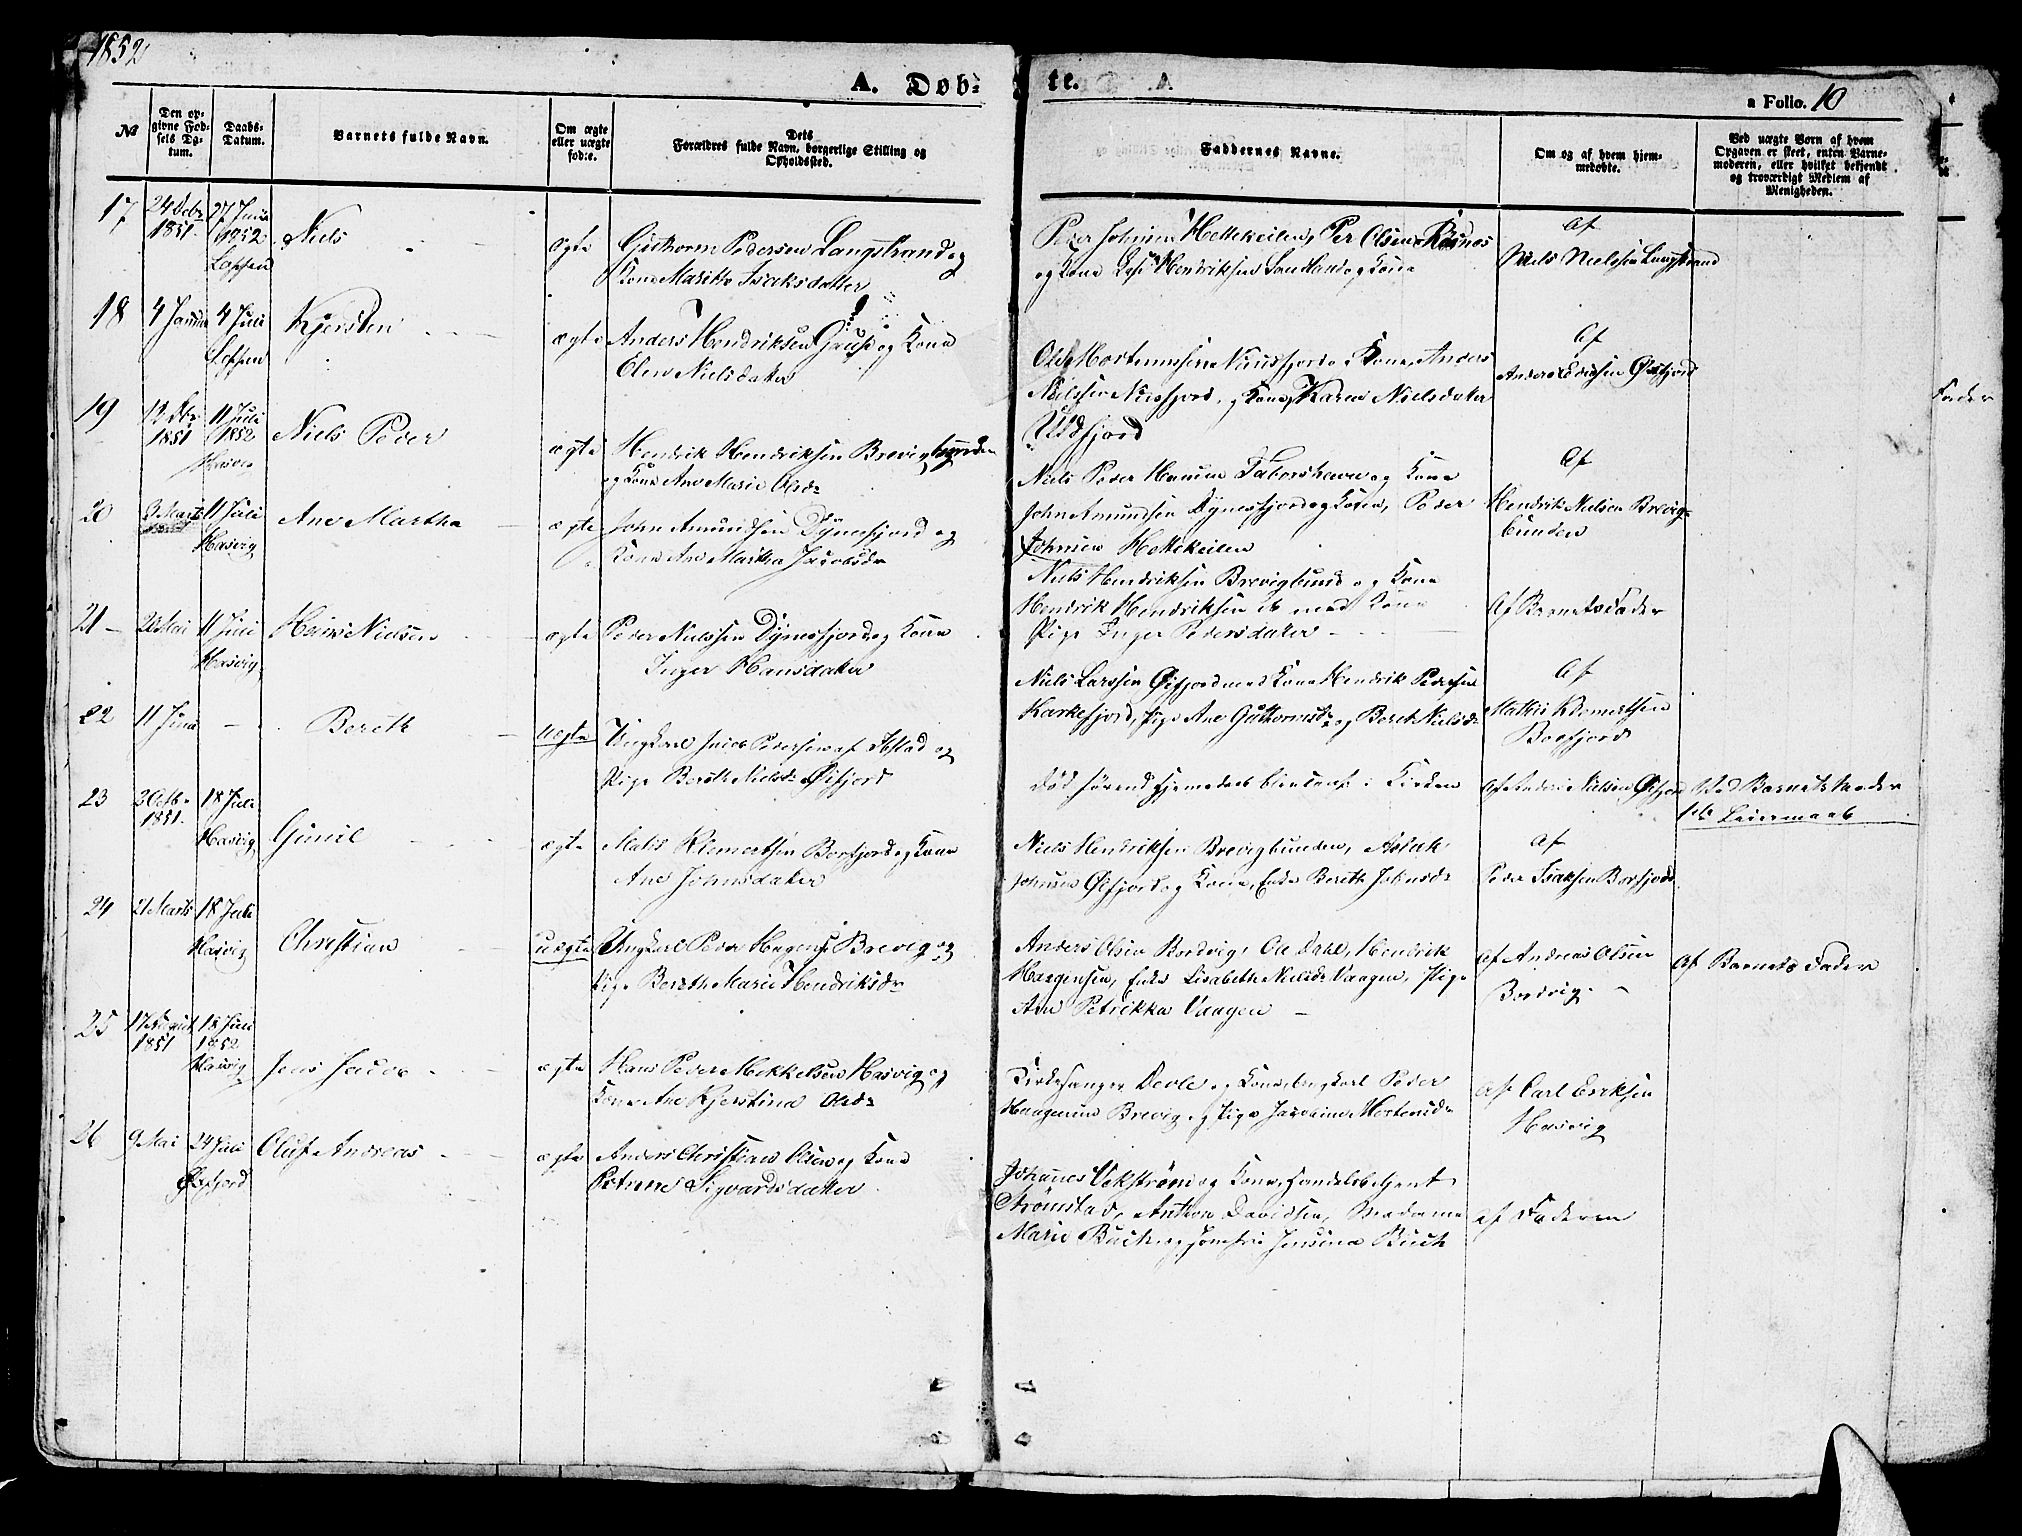 1852
A. Døb-
te.
a Folio. 10
No
Den op-
givne Fød-
sels Da-
tum.
Daabs-
Datum.
Barnets fulde Navn.
Om ægte
eller uægte
fød:e.
Dets
Forældres fulde Navn, borgerlige Stilling og
Opholdssted.
Faddernes Navne.
Om og af hvem hjem-
medøbte.
Ved uægte Børn af hvem
Opgaven er skeet, enten Barne-
moderen, eller hvilket bekjendt
og troværdigt Medlem af
Menigheden.
17
24 Debr
1851.
1852
Loppen
Niels
ægte
Guthorm Pedersen Langstrand og
Kone Marithe Isaksdatter
Peder Johnsen Hettekeilen, Per Olsen
og Kone Hendriksen Sandland og Kone
Af
Niels Nielsen Langstrand
18
4 Januar
4 Juli
Loppen
Kjersten
ægte
Anders Hendriksen og Kone
Elen Nielsdatter
Ole Mortensen og Kone, Anders
Nielsen og Kone, Karen Nielsdatter
Ulsfjord
Af
Øifjord
19
1851
11 Juli
1852
Niels Peder
ægte
Hendrik Hendriksen Brevigbunden
og Kone Ane Marie Olsdr
Niels Peder Hansen og Kone
John Amundsen Dynesfjord og Kone, Peder
Johnsen Hettekeilen
Af
Hendrik Nielsen Brevig-
bunden
20
9 Marts
11 Juli
Hasvig
Ane Martha
ægte
John Amundsen Dynesfjord og
Kone Ane Martha Jacobsdr
Niels Hendriksen Brevigbund og Kone
Hendrik Hendriksen ib med Kone
Pige Inger Pedersdatter
Af Barnets Fader
21
20 Mai
11 Juli
Hasvig
Hans Nielsen
ægte
Peder Nielsen Dynesfjord og Kone
Inger Hansdatter
Niels Larssen Øifjord med Kone Hendrik Pedersen
Karkefjord, Pige Ane Guttormsdr og Bereth Nielsdr
Af
Mathis Klemetsen
Borfjord
22
11 Juni
Bereth
uægte
Ungkarl Pedersen af Ibstad og
Pige Bereth Nielsdr Øifjord
død førend Hjemedaab blev conf. i Kirken
Af Anders Nielsen Øifjord
Ved Barnets Moder
1ste Leiermaal
23
3 Octbr
1851.
18 Juli
Hasvig
Guneil
ægte
Matis Klemetsen Borfjord og Kone
Ane Johnsdatter
Niels Hendriksen Brevigbunden, Aslak
Johnsen Øifjord og Kone, Enke Bereth Johnsdr
Af
Peder Isaksen Borfjord
24
21 Marts
18 Juli
Hasvig
Christian
uægte
Ungkarl Peder Hagensen Brevig og
Pige Bereth Marie Hendriksdr
Anders Olsen Bordvig, Ole Dahl, Hendrik
Haagensen, Enke Lisabeth Nielsdr Vaagen, Pige
Ane Petrikka Vaagen
Af Andreas Olsen
Bordvig.
Af Barnets Fader
25
17 August
1851
18 Juli
1852
Hasvig
Jens Jacob
ægte
Hans Peder Mikkelsen Hasvig og
Kone Ane Kjerstina Olsdr
Kirkesanger og Kone, Ungkarl Peder
Haagensen Brevig og Pige Jacobine Mortensdr
af Carl Eriksen
Hasvig
26
9 Mai
24 Juli
Øxfjord
Oluf Andreas
ægte
Anders Christian Olsen og Kone
Petrine Sigvardsdatter
Johanes Vekstrøm og Kone, Handelsbetjent
Strømstad, Anthon Davidsen, Madame
Marie Buch og Jomfru Jensine Buch
af Faderen
Fader